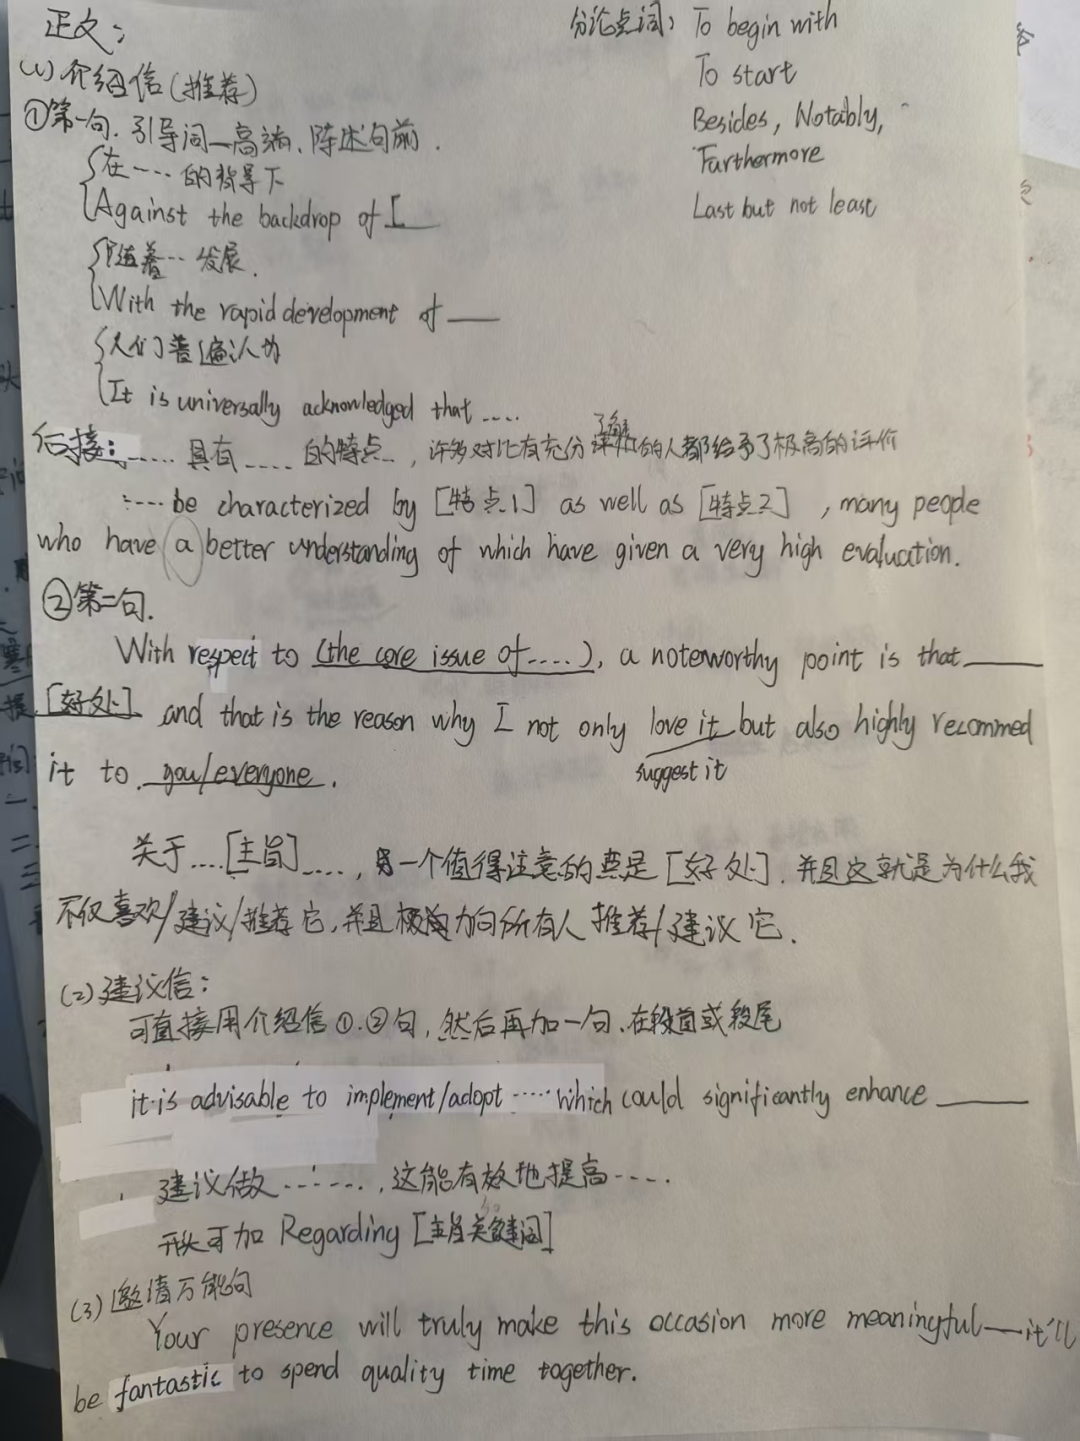 正文：
分论点词： To begin with
To start
Besides, Notably,
Farthermore
Last but not least
(1) 介绍信(推荐)
①第一句. 引导词—高端、陈述句前.
在……的背景下
Against the backdrop of
随着…发展.
With the rapid development of ___
人们普遍认为
It is universally acknowledged that ....
后接：…… 具有 …… 的特点 , 许多对比有充分了解的人都给予了极高的评价
.... be characterized by [特点1] as well as [特点2] , many people
who have a better understanding of which have given a very high evaluation.
②第二句.
With respect to (the core issue of ....), a noteworthy point is that ___
[好处] and that is the reason why I not only love it but also highly recommed
suggest it
it to you/everyone .
关于 ....[主旨]...., 一个值得注意的点是 [好处] . 并且这就是为什么我
不仅喜欢/建议/推荐它, 并且极力向所有人 推荐/建议它.
(2) 建议信：
可直接用介绍信①.②句, 然后再加一句、在段首或段尾
it is advisable to implement/adopt ..... which could significantly enhance ___
建议做 ……, 这能有效地提高 ....
开头可加 Regarding [主旨关键词]
(3) 邀请万能句
Your presence will truly make this occasion more meaningful—it'll
be fantastic to spend quality time together.